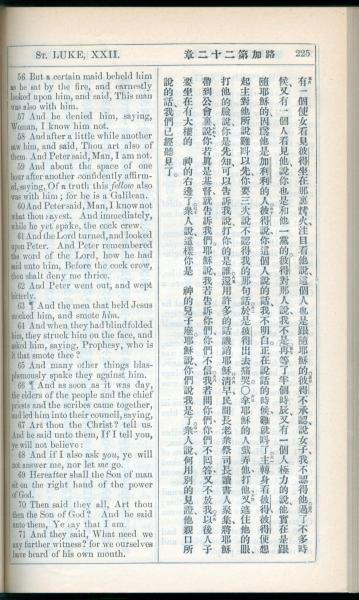 ST. LUKE, XXII.
路加第二十二章
225
56 But a certain maid beheld him
as he sat by the fire, and earnestly
looked upon him, and said, This man
was also with him.
57 And he denied him, saying,
Woman, I know him not.
58 And after a little while another
saw him, and said, Thou art also of
them. And Peter said, Man, I am not.
59 And about the space of one
hour after another confidently affirm-
ed, saying, Of a truth this fellow also
was with him; for he is a Galilean.
60 And Peter said, Man, I know not
what thou sayest. And immediately,
while he yet spoke, the cock crew.
61 And the Lord turned, and looked
upon Peter. And Peter remembered
the word of the Lord, how he had
said unto him, Before the cock crow,
thou shalt deny me thrice.
62 And Peter went out, and wept
bitterly.
63 ¶ And the men that held Jesus
mocked him, and smote him.
64 And when they had blindfolded
him, they struck him on the face, and
asked him, saying, Prophesy, who is
it that smote thee?
65 And many other things blas-
phemously spake they against him.
66 ¶ And as soon as it was day,
the elders of the people and the chief
priests and the scribes came together,
and led him into their council, saying,
67 Art thou the Christ? tell us.
And he said unto them, If I tell you,
ye will not believe:
68 And if I also ask you, ye will
not answer me, nor let me go.
69 Hereafter shall the Son of man
sit on the right hand of the power
of God.
70 Then said they all, Art thou
then the Son of God? And he said
unto them, Ye say that I am.
71 And they said, What need we
any further witness? for we ourselves
have heard of his own mouth.
有一個使女看見彼得坐在那裏烤火、注目看他說、這個人也是跟隨耶穌的。彼得不承認、說、女子、我不認得他。過了不多時
候、又有一個人看見他說、你也是和他一黨的。彼得對那人說、我不是。再等了半個時辰、又有一個人極力的說、他實在是跟
隨耶穌的、因爲他是加利利的人。彼得說、你這個人說的話、我不明白。正在說話的時候、雞就叫了。主轉身看彼得、彼得便想
起主對他所說、雞叫以先、你要三次說不認得我的那句話。於是彼得出去痛哭。○拿耶穌的人戲弄他、打他。又遮住他的眼、
打他的臉、說、你是先知、可以告訴我說、打你的是誰。還用許多的話譏誚耶穌。清早、民間長老、祭司長、讀書人聚集、將耶穌
帶到公會裏、說、你若眞是基督、就告訴我們。耶穌說、我若告訴你們、你們不信。我若問你們、你們不回答、又不放我。以後人子
要坐在有大權的　神的右邊了。衆人說、這樣你是　神的兒子麼。耶穌說、你們說我是了。衆人說、何用別的見證、他親口所
說的話、我們已經聽見了。